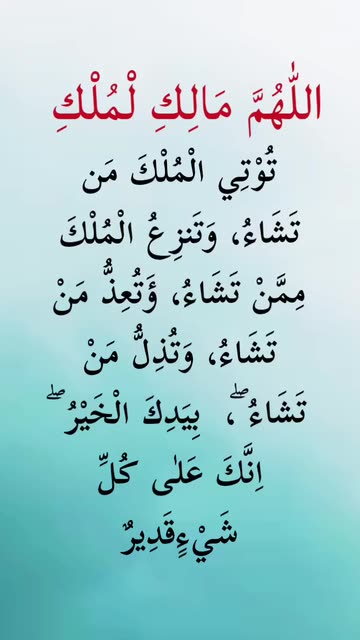 اللّٰهُمَّ مَالِكِ لْمُلْكِ
تُوْتِي الْمُلْكَ مَن
تَشَاءُ، وَتَنزِعُ الْمُلْكَ
مِمَّنْ تَشَاءُ، وَتُعِذُّ مَنْ
تَشَاءُ، وَتُذِلُّ مَنْ
تَشَاءُ ۖ، بِيَدِكَ الْخَيْرُ ۖ
اِنَّكَ عَلٰى كُلِّ
شَيْءٍقَدِيرٌ